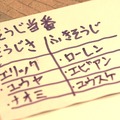 そうじ当番
うじき ふきそうじ
エリック ・ローレン
ユウヤ ・エビアン
ナオミ ・ユウスケ